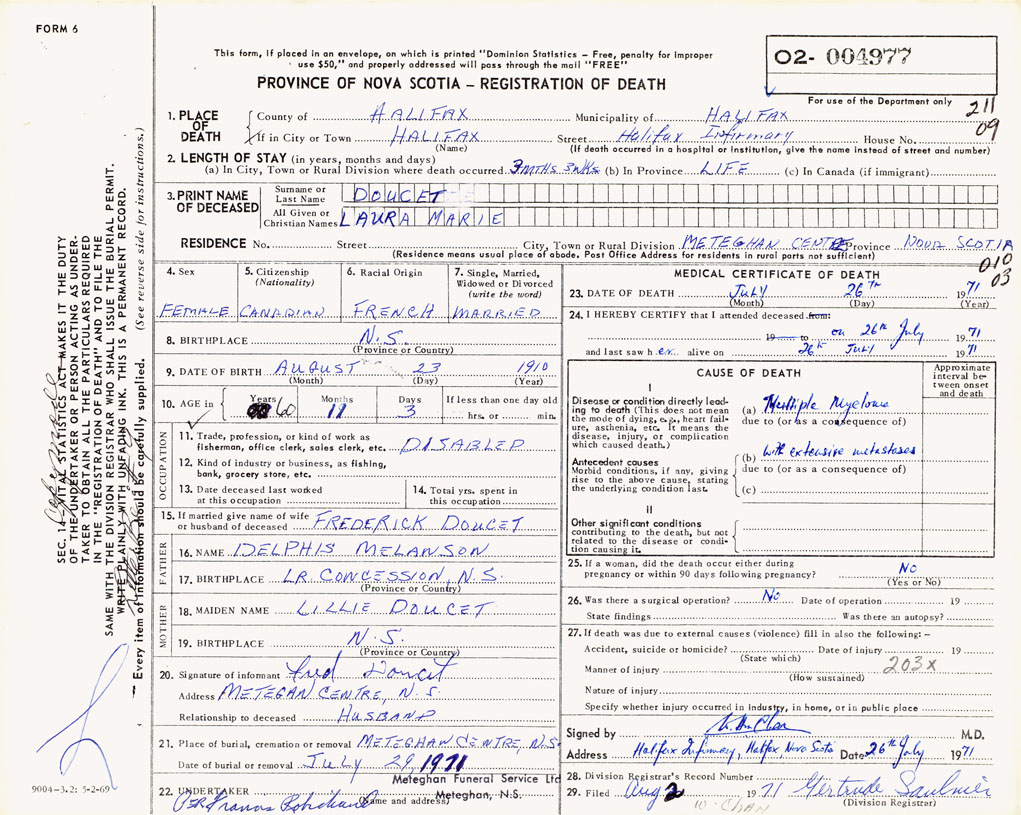 FORM 6
This form, if placed in an envelope, on which is printed "Dominion Statistics – Free, penalty for improper
use $50," and properly addressed will pass through the mail "FREE"
PROVINCE OF NOVA SCOTIA – REGISTRATION OF DEATH
02- 004977
For use of the Department only
211
09
1. PLACE OF DEATH
County of HALIFAX Municipality of HALIFAX
If in City or Town HALIFAX Street Halifax Infirmary House No.
(Name) (If death occurred in a hospital or institution, give the name instead of street and number)
2. LENGTH OF STAY (in years, months and days)
(a) In City, Town or Rural Division where death occurred 3 MTHS 3 WKS (b) In Province LIFE (c) In Canada (if immigrant)
3. PRINT NAME OF DECEASED
Surname or Last Name DOUCET
All Given or Christian Names LAURA MARIE
RESIDENCE No. Street City, Town or Rural Division METEGHAN CENTRE Province NOVA SCOTIA
(Residence means usual place of abode. Post Office Address for residents in rural parts not sufficient)
010
03
4. Sex FEMALE
5. Citizenship (Nationality) CANADIAN
6. Racial Origin FRENCH
7. Single, Married, Widowed or Divorced (write the word) MARRIED
8. BIRTHPLACE N.S.
(Province or Country)
9. DATE OF BIRTH AUGUST 23 1910
(Month) (Day) (Year)
10. AGE in Years 60 Months 11 Days 3 If less than one day old
hrs. or min.
OCCUPATION
11. Trade, profession, or kind of work as
fisherman, office clerk, sales clerk, etc. DISABLED
12. Kind of industry or business, as fishing,
bank, grocery store, etc.
13. Date deceased last worked
at this occupation
14. Total yrs. spent in
this occupation
15. If married give name of wife
or husband of deceased FREDERICK DOUCET
FATHER
16. NAME DELPHIS MELANSON
17. BIRTHPLACE LR. CONCESSION, N.S.
(Province or Country)
MOTHER
18. MAIDEN NAME LILLIE DOUCET
19. BIRTHPLACE N.S.
(Province or Country)
20. Signature of informant Fred Doucet
Address METEGAN CENTRE, N.S.
Relationship to deceased HUSBAND
21. Place of burial, cremation or removal METEGHAN CENTRE, N.S.
Date of burial or removal JULY 29, 1971
22. UNDERTAKER Meteghan Funeral Service Ltd
(Name and address) Meteghan, N.S.
MEDICAL CERTIFICATE OF DEATH
23. DATE OF DEATH JULY 26TH 1971
(Month) (Day) (Year)
24. I HEREBY CERTIFY that I attended deceased from:
19 to on 26th July 1971
and last saw her alive on 26th JULY 1971
CAUSE OF DEATH
Approximate interval between onset and death
I
Disease or condition directly leading to death (This does not mean the mode of dying, e.g., heart failure, asthenia, etc. It means the disease, injury, or complication which caused death.)
(a) Multiple Myeloma
due to (or as a consequence of)
Antecedent causes
Morbid conditions, if any, giving rise to the above cause, stating the underlying condition last.
(b) With extensive metastases
due to (or as a consequence of)
(c)
II
Other significant conditions
contributing to the death, but not related to the disease or condition causing it.
25. If a woman, did the death occur either during
pregnancy or within 90 days following pregnancy? NO
(Yes or No)
26. Was there a surgical operation? No Date of operation 19
State findings Was there an autopsy?
27. If death was due to external causes (violence) fill in also the following: –
Accident, suicide or homicide? Date of injury 19
(State which)
Manner of injury 203X
(How sustained)
Nature of injury
Specify whether injury occurred in industry, in home, or in public place
Signed by M.D.
Address Halifax Infirmary, Halifax, Nova Scotia Date 26th July 1971
28. Division Registrar's Record Number
29. Filed Aug 2 1971 Gertrude Saulnier
(Division Registrar)
W. CHAN
SEC. 14 VITAL STATISTICS ACT MAKES IT THE DUTY
OF THE UNDERTAKER OR PERSON ACTING AS UNDER-
TAKER TO OBTAIN ALL THE PARTICULARS REQUIRED
IN THE "REGISTRATION OF DEATH" AND TO FILE THE
SAME WITH THE DIVISION REGISTRAR WHO SHALL ISSUE THE BURIAL PERMIT.
WRITE PLAINLY WITH UNFADING INK. THIS IS A PERMANENT RECORD.
Every item of information should be carefully supplied. (See reverse side for instructions.)
9004-3.2: 5-2-69